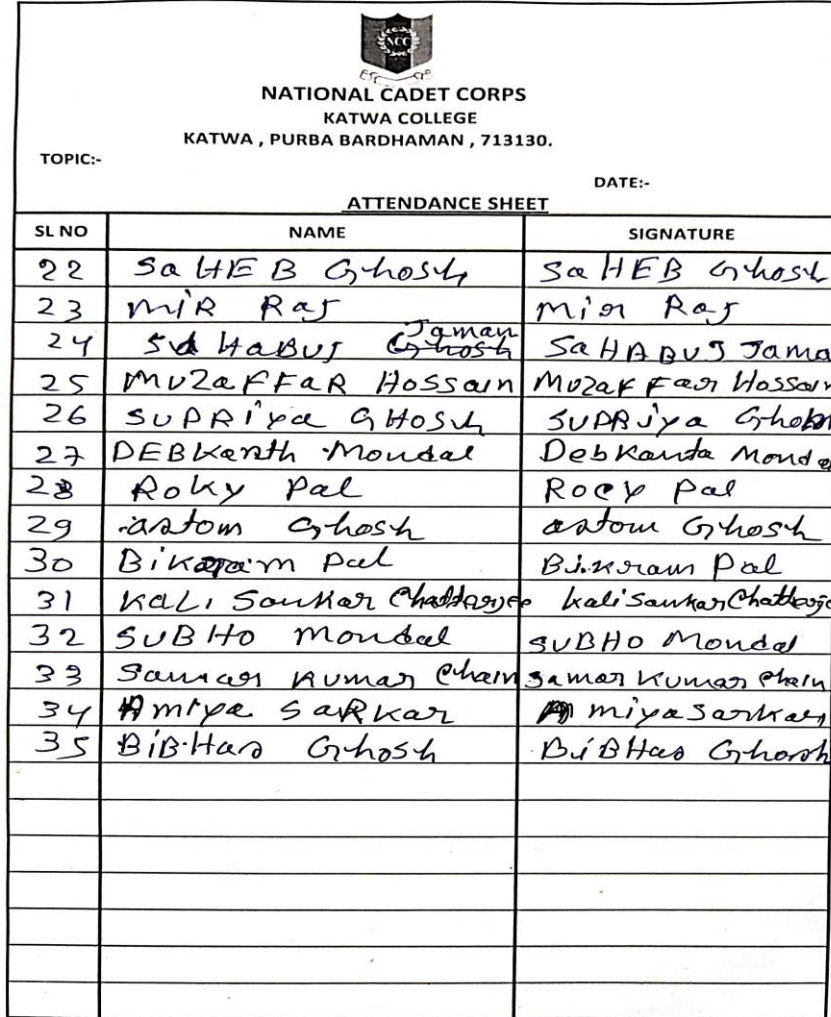 NCC
NATIONAL CADET CORPS
KATWA COLLEGE
KATWA , PURBA BARDHAMAN , 713130.
TOPIC:-
DATE:-
ATTENDANCE SHEET
SL NO NAME SIGNATURE
22 SaHEB Ghosh SaHEB Ghosh
23 MiR Raj Mir Raj
24 SaHaBUJ Jaman Ghosh SaHABUJ Jama
25 MUZaFFaR HOSSain MUZaFFar Hossain
26 SUPRiya GHOSh SUPRiya Ghosh
27 DEBKanth Mondal DebKanta Monda
28 ROKY Pal ROCY Pal
29 Ghosh Ghosh
30 Pal Bikram Pal
31 KaLi Sankar Chatterjee kali Sankar Chatterje
32 SUBHO Mondal SUBHO Mondal
33 Samar KUMAR Chain Samar KUMAR Chain
34 Amiya SaRKar Amiya Sarkar
35 BiBHas Ghosh BiBHas Ghosh